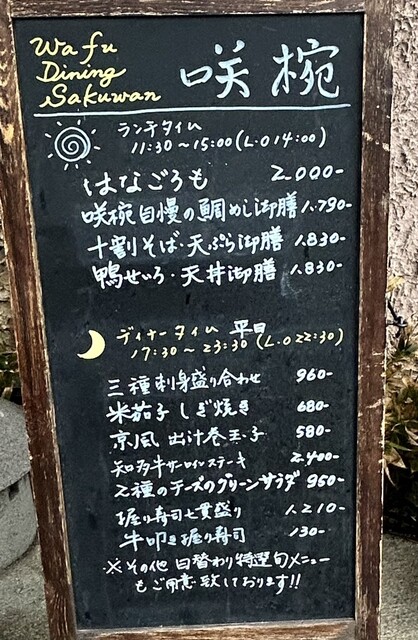 Wa fu
Dining
Sakuwan
咲椀
ランチタイム
11:30～15:00(L.O14:00)
はなごろも 2.000-
咲椀自慢の鯛めし御膳 1.790-
十割そば・天ぷら御膳 1.830-
鴨せいろ・天丼御膳 1.830-
ディナータイム 平日
17:30～23:30(L.O22:30)
三種刺身盛り合わせ 960-
米茄子しぎ焼き 680-
京風出汁巻玉子 580-
知多牛サーロインステーキ 2.400-
2種のチーズのグリーンサラダ 950-
握り寿司七貫盛り 1.210-
牛叩き握り寿司 130-
※その他 日替わり特選旬メニュー
もご用意致しております!!